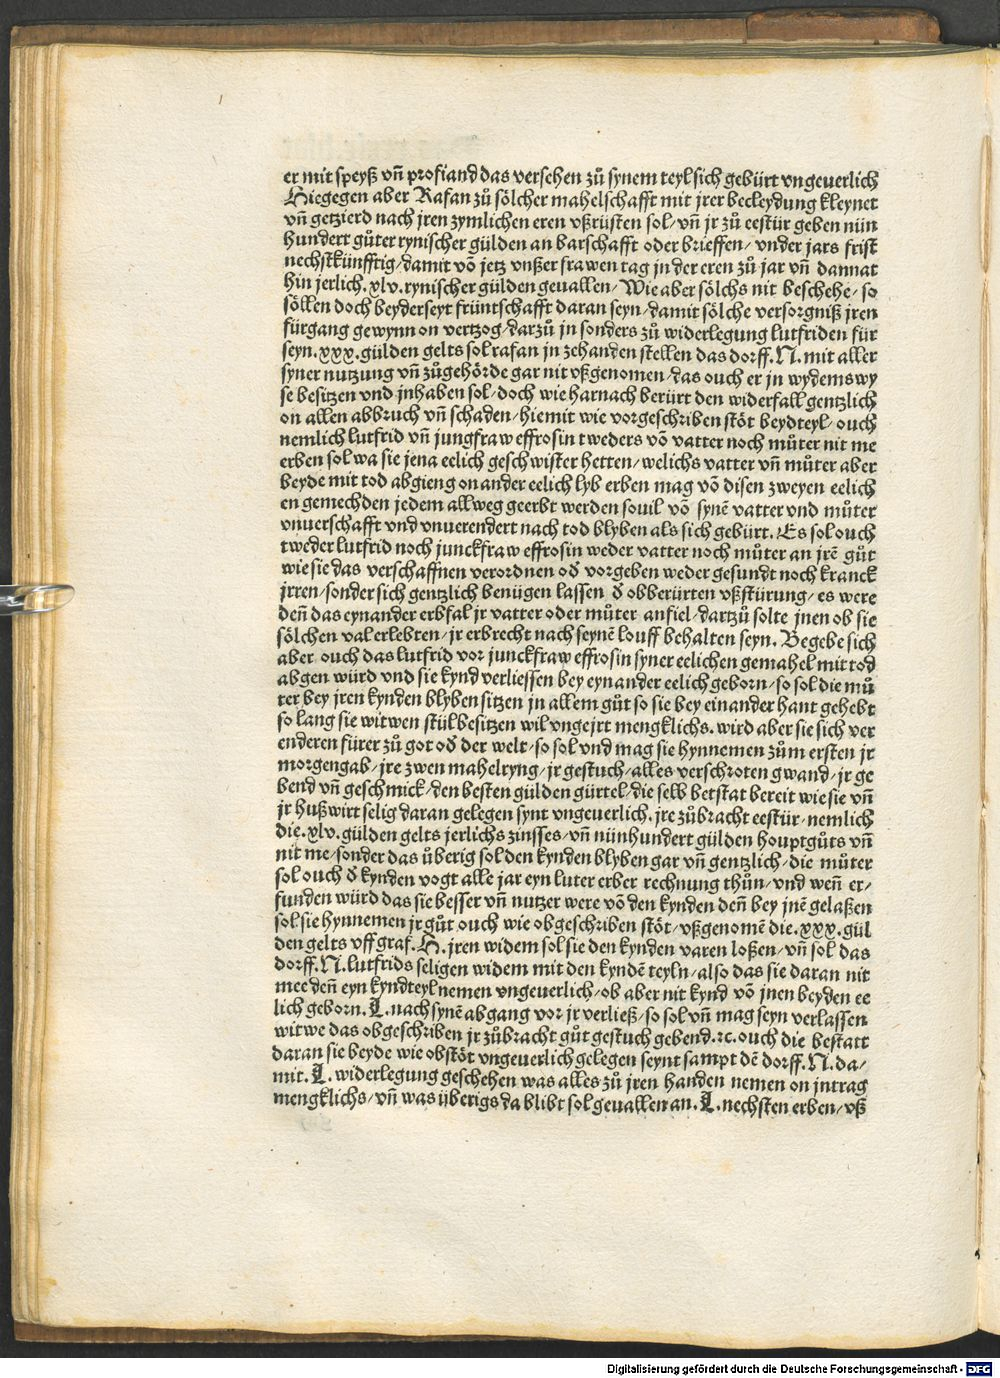 er mit speyß vñ profiand das versehen zů synem teyl sich gebürt vngeuerlich
Hiegegen aber Rafan zů sölcher mahelschafft mit jrer becleydung kleynet
vñ getzierd nach jren zymlichen eren vßrüsten sol/ vñ jr zů eestür geben nün
hundert gůter rynischer gülden an barschafft oder brieffen/ vnder jars frist
nechstkünfftig/ damit võ jetz vnßer frawen tag jn der eren zů jar vñ dannat
hin jerlich. xlv. rynischer gülden geuallen/ Wie aber sölchs nit beschehe/ so
söllen doch beyderseyt früntschafft daran seyn/ damit sölche versorgniß jren
fürgang gewynn on vertzog/ darzů jn sonders zů widerlegung lutfriden für
seyn. xxx. gülden gelts sol rafan jn zehanden stellen das dorff. N. mit aller
syner nutzung vñ zůgehörde gar nit vßgenomen/ das ouch er jn wydems wy
se besitzen vnd jnhaben sol/ doch wie harnach berürt den widerfall gentzlich
on allen abbruch vñ schaden/ hiemit wie vorgeschriben stöt beydteyl/ ouch
nemlich lutfrid vñ jungfraw effrosin tweders võ vatter noch můter nit me
erben sol wa sie jena eelich geschwister hetten/ welichs vatter vñ můter aber
beyde mit tod abgieng on ander eelich lyb erben mag võ disen zweyen eelich
en gemechden jedem allweg geerbt werden souil võ synẽ vatter vnd můter
vnuerschafft vnd vnuerendert nach tod blyben als sich gebürt. Es sol ouch
tweder lutfrid noch junckfraw effrosin weder vatter noch můter an jrẽ gůt
wie sie das verschaffnen verordnen oð vorgeben weder gesundt noch kranck
jrren/ sonder sich gentzlich benügen lassen ð obberürten vßstürung/ es were
deñ das eynander erbfal jr vatter oder můter anfiel/ dartzů solte jnen ob sie
sölchen val erlebten/ jr erbrecht nach seynẽ louff behalten seyn. Begebe sich
aber ouch das lutfrid vor junckfraw effrosin syner eelichen gemahel mit tod
abgen würd vnd sie kynd verliessen bey eynander eelich geborn/ so sol die mů
ter bey jren kynden blyben sitzen jn allem gůt so sie bey einander hant gehebt
so lang sie witwen stůl besitzen wil vngejrt mengklichs. wird aber sie sich ver
enderen fürer zů got oð der welt/ so sol vnd mag sie hynnemen zům ersten jr
morgengab/ jre zwen mahelryng/ jr gestuch/ alles verschroten gwand/ jr ge
bend vñ geschmick/ den besten gülden gürtel/ die selb betstat bereit wie sie vñ
jr hußwirt selig daran gelegen synt vngeuerlich. jre zůbracht eestür/ nemlich
die. xlv. gülden gelts jerlichs zinsses/ vñ nünhundert gülden houptgůts vñ
nit me/ sonder das überig sol den kynden blyben gar vñ gentzlich/ die můter
sol ouch ð kynden vogt alle jar eyn luter erber rechnung thůn/ vnd weñ er/
funden würd das sie besser vñ nutzer were võ den kynden deñ bey jnẽ gelaßen
sol sie hynnemen jr gůt ouch wie obgeschriben stöt/ vßgenomẽ die. xxx. gül
den gelts vff graf. H. jren widem sol sie den kynden varen loßen/ vñ sol das
dorff. N. lutfrids seligen widem mit den kyndẽ teyln/ also das sie daran nit
mee deñ eyn kyndteyl nemen vngeuerlich/ ob aber nit kynd võ jnen beyden ee
lich geborn. L. nach synẽ abgang vor jr verließ/ so sol vñ mag seyn verlassen
witwe das obgeschriben jr zůbracht gůt gestuch gebend. ⁊c. ouch die bestatt
daran sie beyde wie obstöt vngeuerlich gelegen seynt sampt dẽ dorff. N. da/
mit. L. widerlegung geschehen was alles zů jren handen nemen on jntrag
mengklichs/ vñ was überigs da blibt sol geuallen an. L. nechsten erben/ vß
Digitalisierung gefördert durch die Deutsche Forschungsgemeinschaft - DFG